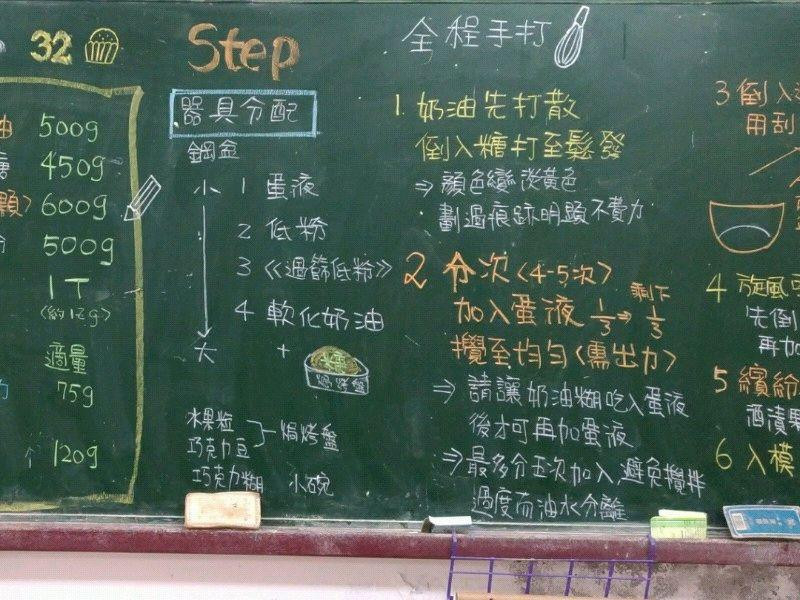 32
油 500g
糖 450g
顆〉 600g
粉 500g
1T
〈約12g〉
適量
75g
↑ 120g
Step
器具分配
鋼盆
小 1 蛋液
2 低粉
3 《過篩低粉》
4 軟化奶油
大 + 糖
焗烤盤
水果粒
巧克力豆
焗烤盤
巧克力糊 小碗
全程手打
1. 奶油先打散
倒入糖打至鬆發
⇒ 顏色變淡黃色
· 劃過痕跡明顯不費力
2 分次〈4-5次〉
加入蛋液 1/3 → 剩下 1/3
攪至均勻〈需出力〉
⇒ 請讓奶油糊吃入蛋液
後才可再加蛋液
⇒ 最多分五次加入,避免攪拌
過度而油水分離
3 倒入
用刮
4 旋風
先倒
再加
5 繽紛
酒漬
6 入模